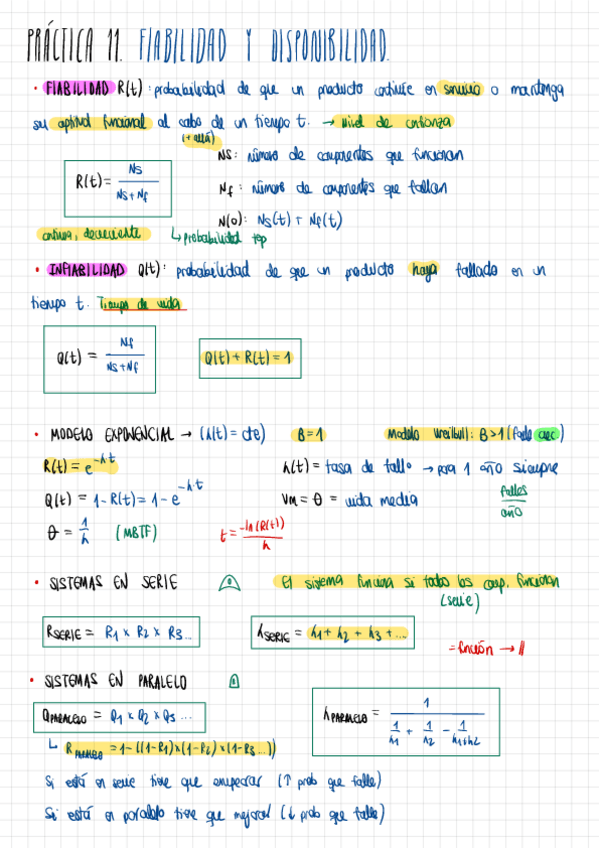 PRÁCTICA 11. FIABILIDAD Y DISPONIBILIDAD.
• FIABILIDAD R(t): probabilidad de que un producto continúe en servicio o mantenga
su aptitud funcional al cabo de un tiempo t. → nivel de confianza
R(t) = Ns / (Ns + Nf)
Ns: número de componentes que funcionan
Nf: número de componentes que fallan
N(0): Ns(t) + Nf(t)
continua, decreciente ↳ probabilidad top
• INFIABILIDAD Q(t): probabilidad de que un producto haya fallado en un
tiempo t. Tiempo de vida
Q(t) = Nf / (Ns + Nf)
Q(t) + R(t) = 1
• MODELO EXPONENCIAL → (λ(t) = cte) B = 1 Modelo Weibull: B > 1 (fallo crec)
R(t) = e^-λ·t
λ(t) = tasa de fallo → para 1 año siempre
Q(t) = 1 - R(t) = 1 - e^-λ·t
VM = θ = vida media
fallos / año
θ = 1/λ (MBTF)
t = -ln(R(t)) / λ
• SISTEMAS EN SERIE
El sistema funciona si todos los comp. funcionan
(serie)
RSERIE = R1 x R2 x R3...
λSERIE = λ1 + λ2 + λ3 + ...
= función → //
• SISTEMAS EN PARALELO
QPARALELO = Q1 x Q2 x Q3 ...
λPARALELO = 1 / (1/λ1 + 1/λ2 - 1/λ1+λ2)
↳ RPARALELO = 1 - ((1-R1)x(1-R2)x(1-R3...))
Si está en serie tiene que empeorar (↑ prob que falle)
Si está en paralelo tiene que mejorar (↓ prob que falle)